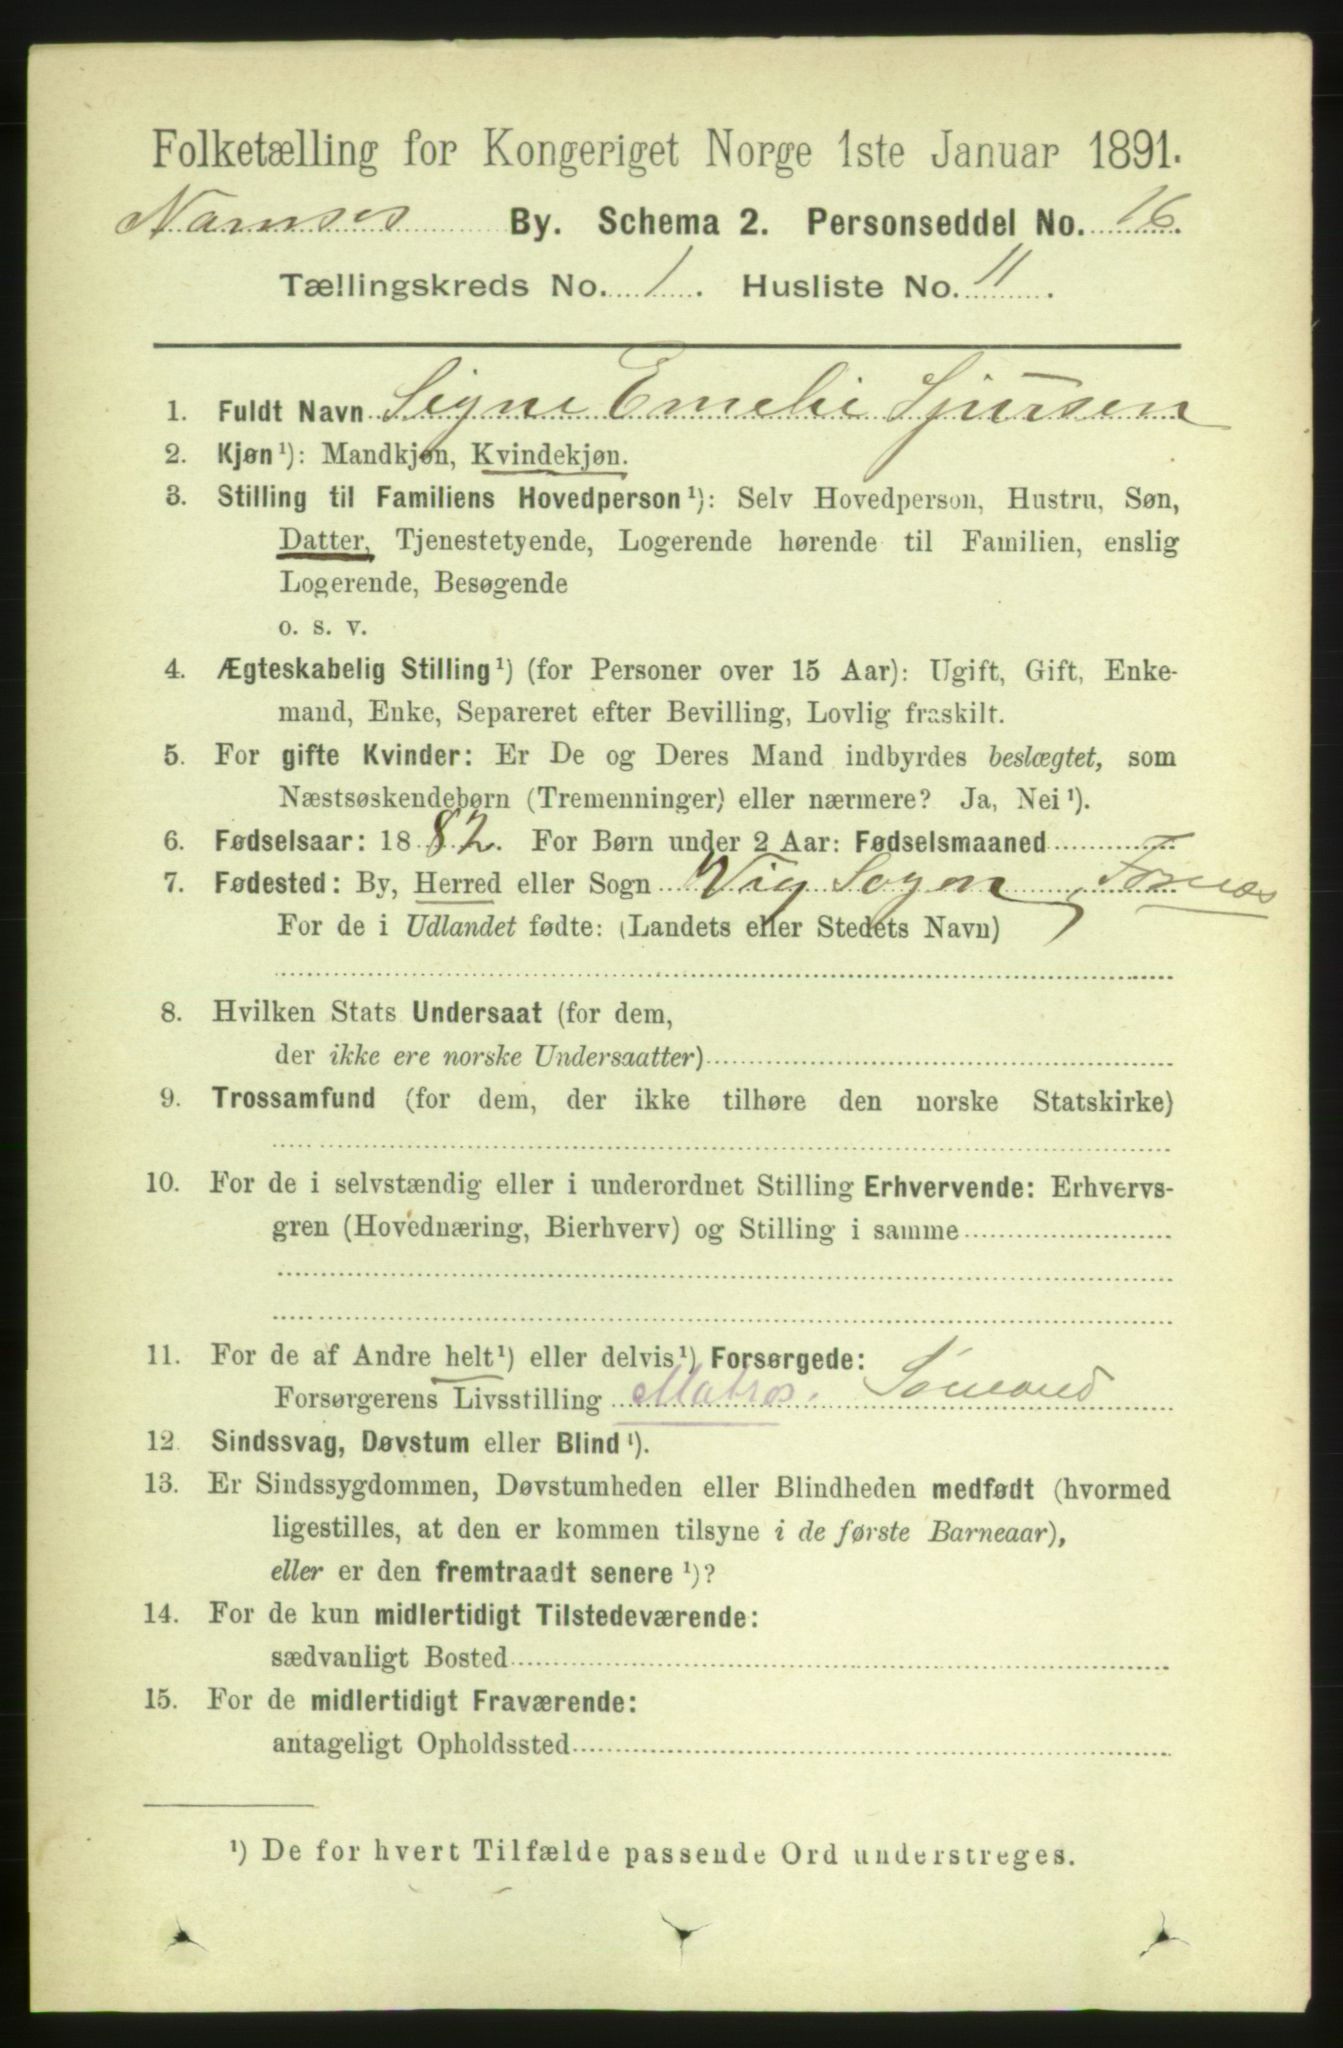 Folketælling for Kongeriget Norge 1ste Januar 1891.
Namsos By. Schema 2. Personseddel No. 16.
Tællingskreds No. 1. Husliste No. 11.
1. Fuldt Navn Signe Emelie Sjursen
2. Kjøn¹): Mandkjøn, Kvindekjøn.
3. Stilling til Familiens Hovedperson¹): Selv Hovedperson, Hustru, Søn,
Datter, Tjenestetyende, Logerende hørende til Familien, enslig
Logerende, Besøgende
o. s. v.
4. Ægteskabelig Stilling¹) (for Personer over 15 Aar): Ugift, Gift, Enke-
mand, Enke, Separeret efter Bevilling, Lovlig fraskilt.
5. For gifte Kvinder: Er De og Deres Mand indbyrdes beslægtet, som
Næstsøskendebørn (Tremenninger) eller nærmere? Ja, Nei¹).
6. Fødselsaar: 1882. For Børn under 2 Aar: Fødselsmaaned
7. Fødested: By, Herred eller Sogn Vig Sogn, Fosnæs
For de i Udlandet fødte: (Landets eller Stedets Navn)
8. Hvilken Stats Undersaat (for dem,
der ikke ere norske Undersaatter)
9. Trossamfund (for dem, der ikke tilhøre den norske Statskirke)
10. For de i selvstændig eller i underordnet Stilling Erhvervende: Erhvervs-
gren (Hovednæring, Bierhverv) og Stilling i samme
11. For de af Andre helt¹) eller delvis¹) Forsørgede:
Forsørgerens Livsstilling Matros. Sömand
12. Sindssvag, Døvstum eller Blind¹).
13. Er Sindssygdommen, Døvstumheden eller Blindheden medfødt (hvormed
ligestilles, at den er kommen tilsyne i de første Barneaar),
eller er den fremtraadt senere¹)?
14. For de kun midlertidigt Tilstedeværende:
sædvanligt Bosted
15. For de midlertidigt Fraværende:
antageligt Opholdssted
¹) De for hvert Tilfælde passende Ord understreges.